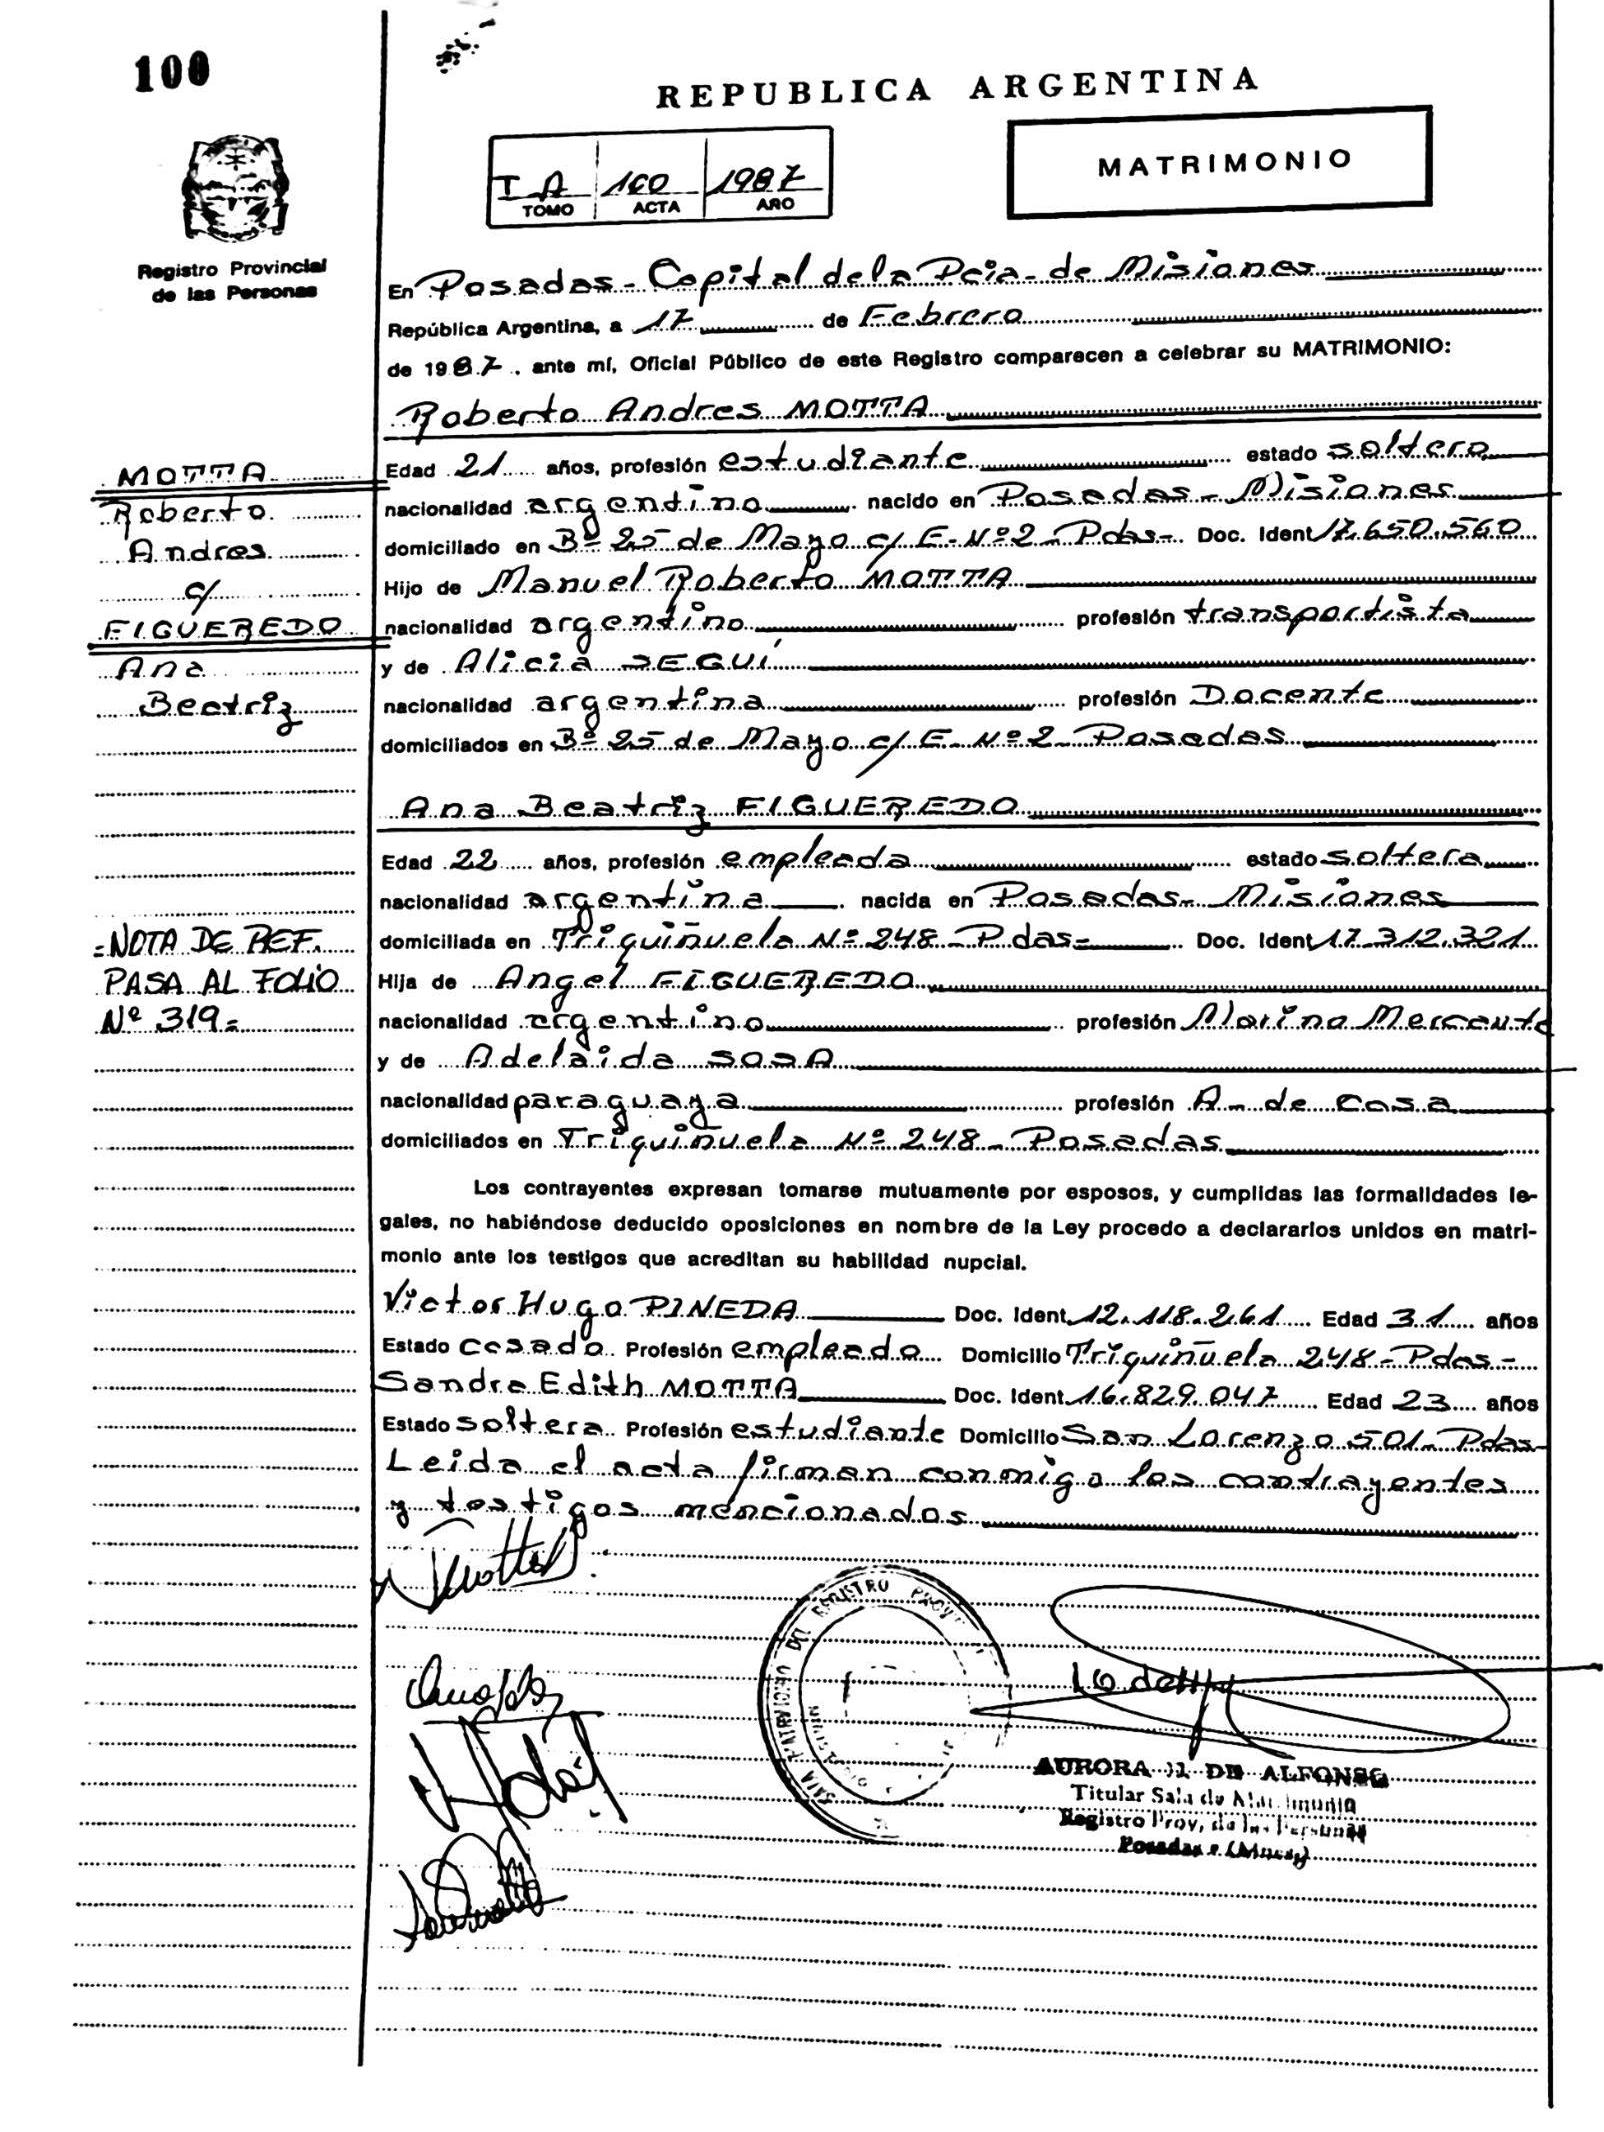 100
REPUBLICA ARGENTINA
MATRIMONIO
I A 100 1987
TOMO ACTA AÑO
Registro Provincial
de las Personas
En Posadas - Capital de la Pcia - de Misiones
República Argentina, a 17 de Febrero
de 1987, ante mí, Oficial Público de este Registro comparecen a celebrar su MATRIMONIO:
Roberto Andres MOTTA
MOTTA
Roberto
Andres
c/
FIGUEREDO
Ana
Beatriz
Edad 21 años, profesión estudiante estado soltero
nacionalidad argentino nacido en Posadas - Misiones
domiciliado en Bº 25 de Mayo c/ E - Nº 2 - Pdas - Doc. Ident 17.650.560
Hijo de Manuel Roberto MOTTA
nacionalidad argentino profesión transportista
y de Alicia SEGUÍ
nacionalidad argentina profesión Docente
domiciliados en Bº 25 de Mayo c/ E - Nº 2 - Posadas
Ana Beatriz FIGUEREDO
Edad 22 años, profesión empleada estado soltera
nacionalidad argentina nacida en Posadas - Misiones
domiciliada en Triquiñuela Nº 248 - Pdas - Doc. Ident 17.312.321
Hija de Angel FIGUEREDO
nacionalidad argentino profesión Marino Mercante
y de Adelaida SOSA
nacionalidad paraguaya profesión A - de casa
domiciliados en Triquiñuela Nº 248 - Posadas
= NOTA DE REF.
PASA AL FOLIO
Nº 319 =
Los contrayentes expresan tomarse mutuamente por esposos, y cumplidas las formalidades le-
gales, no habiéndose deducido oposiciones en nombre de la Ley procedo a declararlos unidos en matri-
monio ante los testigos que acreditan su habilidad nupcial.
Victor Hugo PINEDA Doc. Ident 12.118.261 Edad 31 años
Estado casado Profesión empleado Domicilio Triquiñuela 248 - Pdas -
Sandra Edith MOTTA Doc. Ident 16.829.047 Edad 23 años
Estado soltera Profesión estudiante Domicilio San Lorenzo 501 - Pdas -
Leida el acta firman conmigo los contrayentes
y testigos mencionados
SALA MATRIMONIO DEL REGISTRO
AURORA DE ALFONSO
Titular Sala de Matrimonio
Registro Prov. de las Personas
Posadas